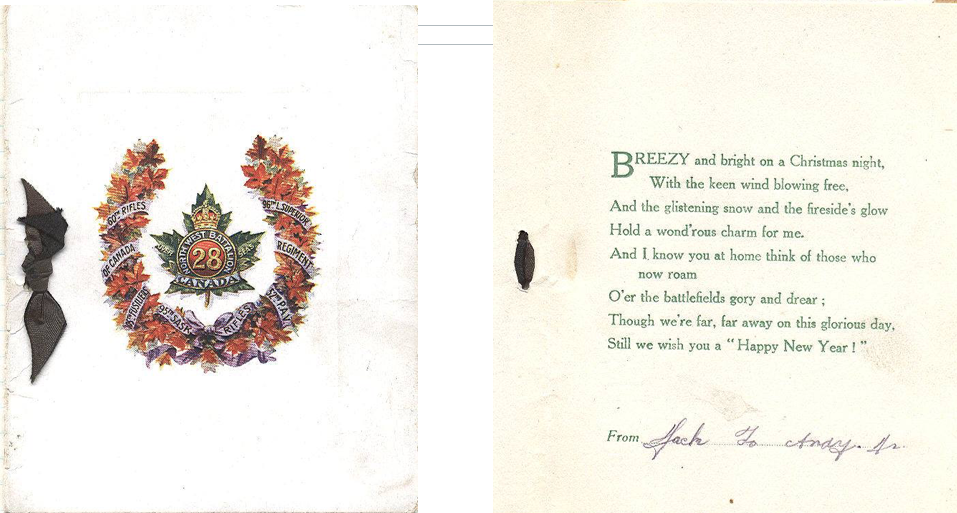 60TH RIFLES
OF CANADA
95TH SASK.
RIFLES
96TH L. SUPERIOR
REGIMENT
NORTH WEST BATTALION
28
CANADA
BREEZY and bright on a Christmas night,
With the keen wind blowing free,
And the glistening snow and the fireside's glow
Hold a wond'rous charm for me.
And I know you at home think of those who
now roam
O'er the battlefields gory and drear ;
Though we're far, far away on this glorious day,
Still we wish you a "Happy New Year ! "
From Jack To Andy. Jr.